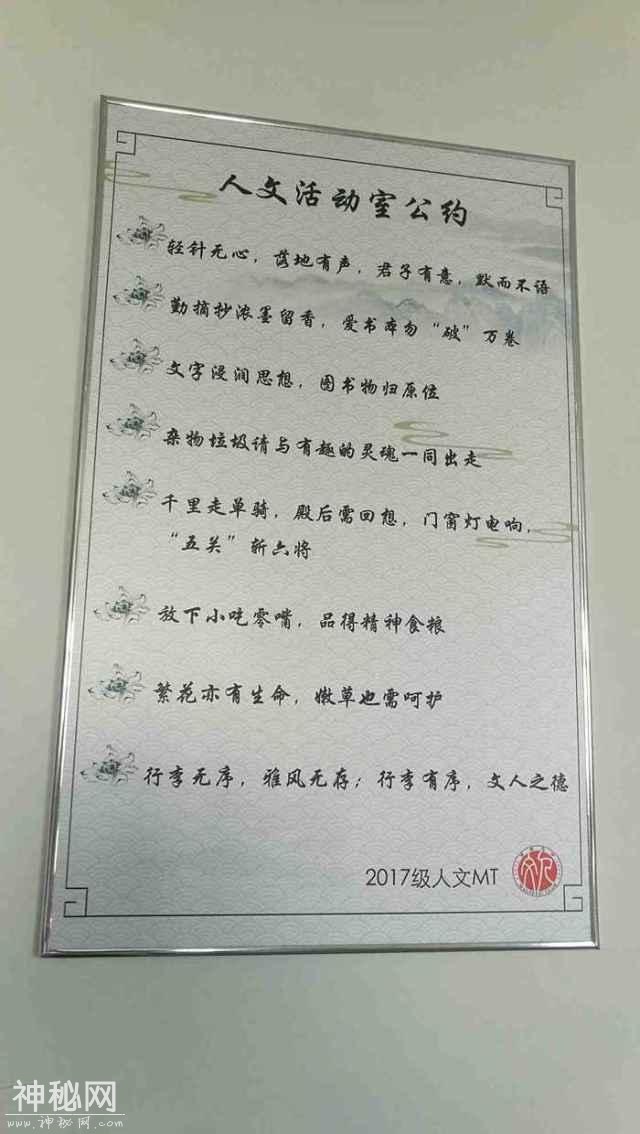 人文活动室公约
轻针无心，落地有声，君子有意，默而不语
勤摘抄浓墨留香，爱书本勿“破”万卷
文字浸润思想，图书物归原位
杂物垃圾请与有趣的灵魂一同出走
千里走单骑，殿后需回想，门窗灯电响，
“五关”斩六将
放下小吃零嘴，品得精神食粮
繁花亦有生命，嫩草也需呵护
行李无序，雅风无存；行李有序，文人之德
2017级人文MT
神秘网
www.神秘网.com